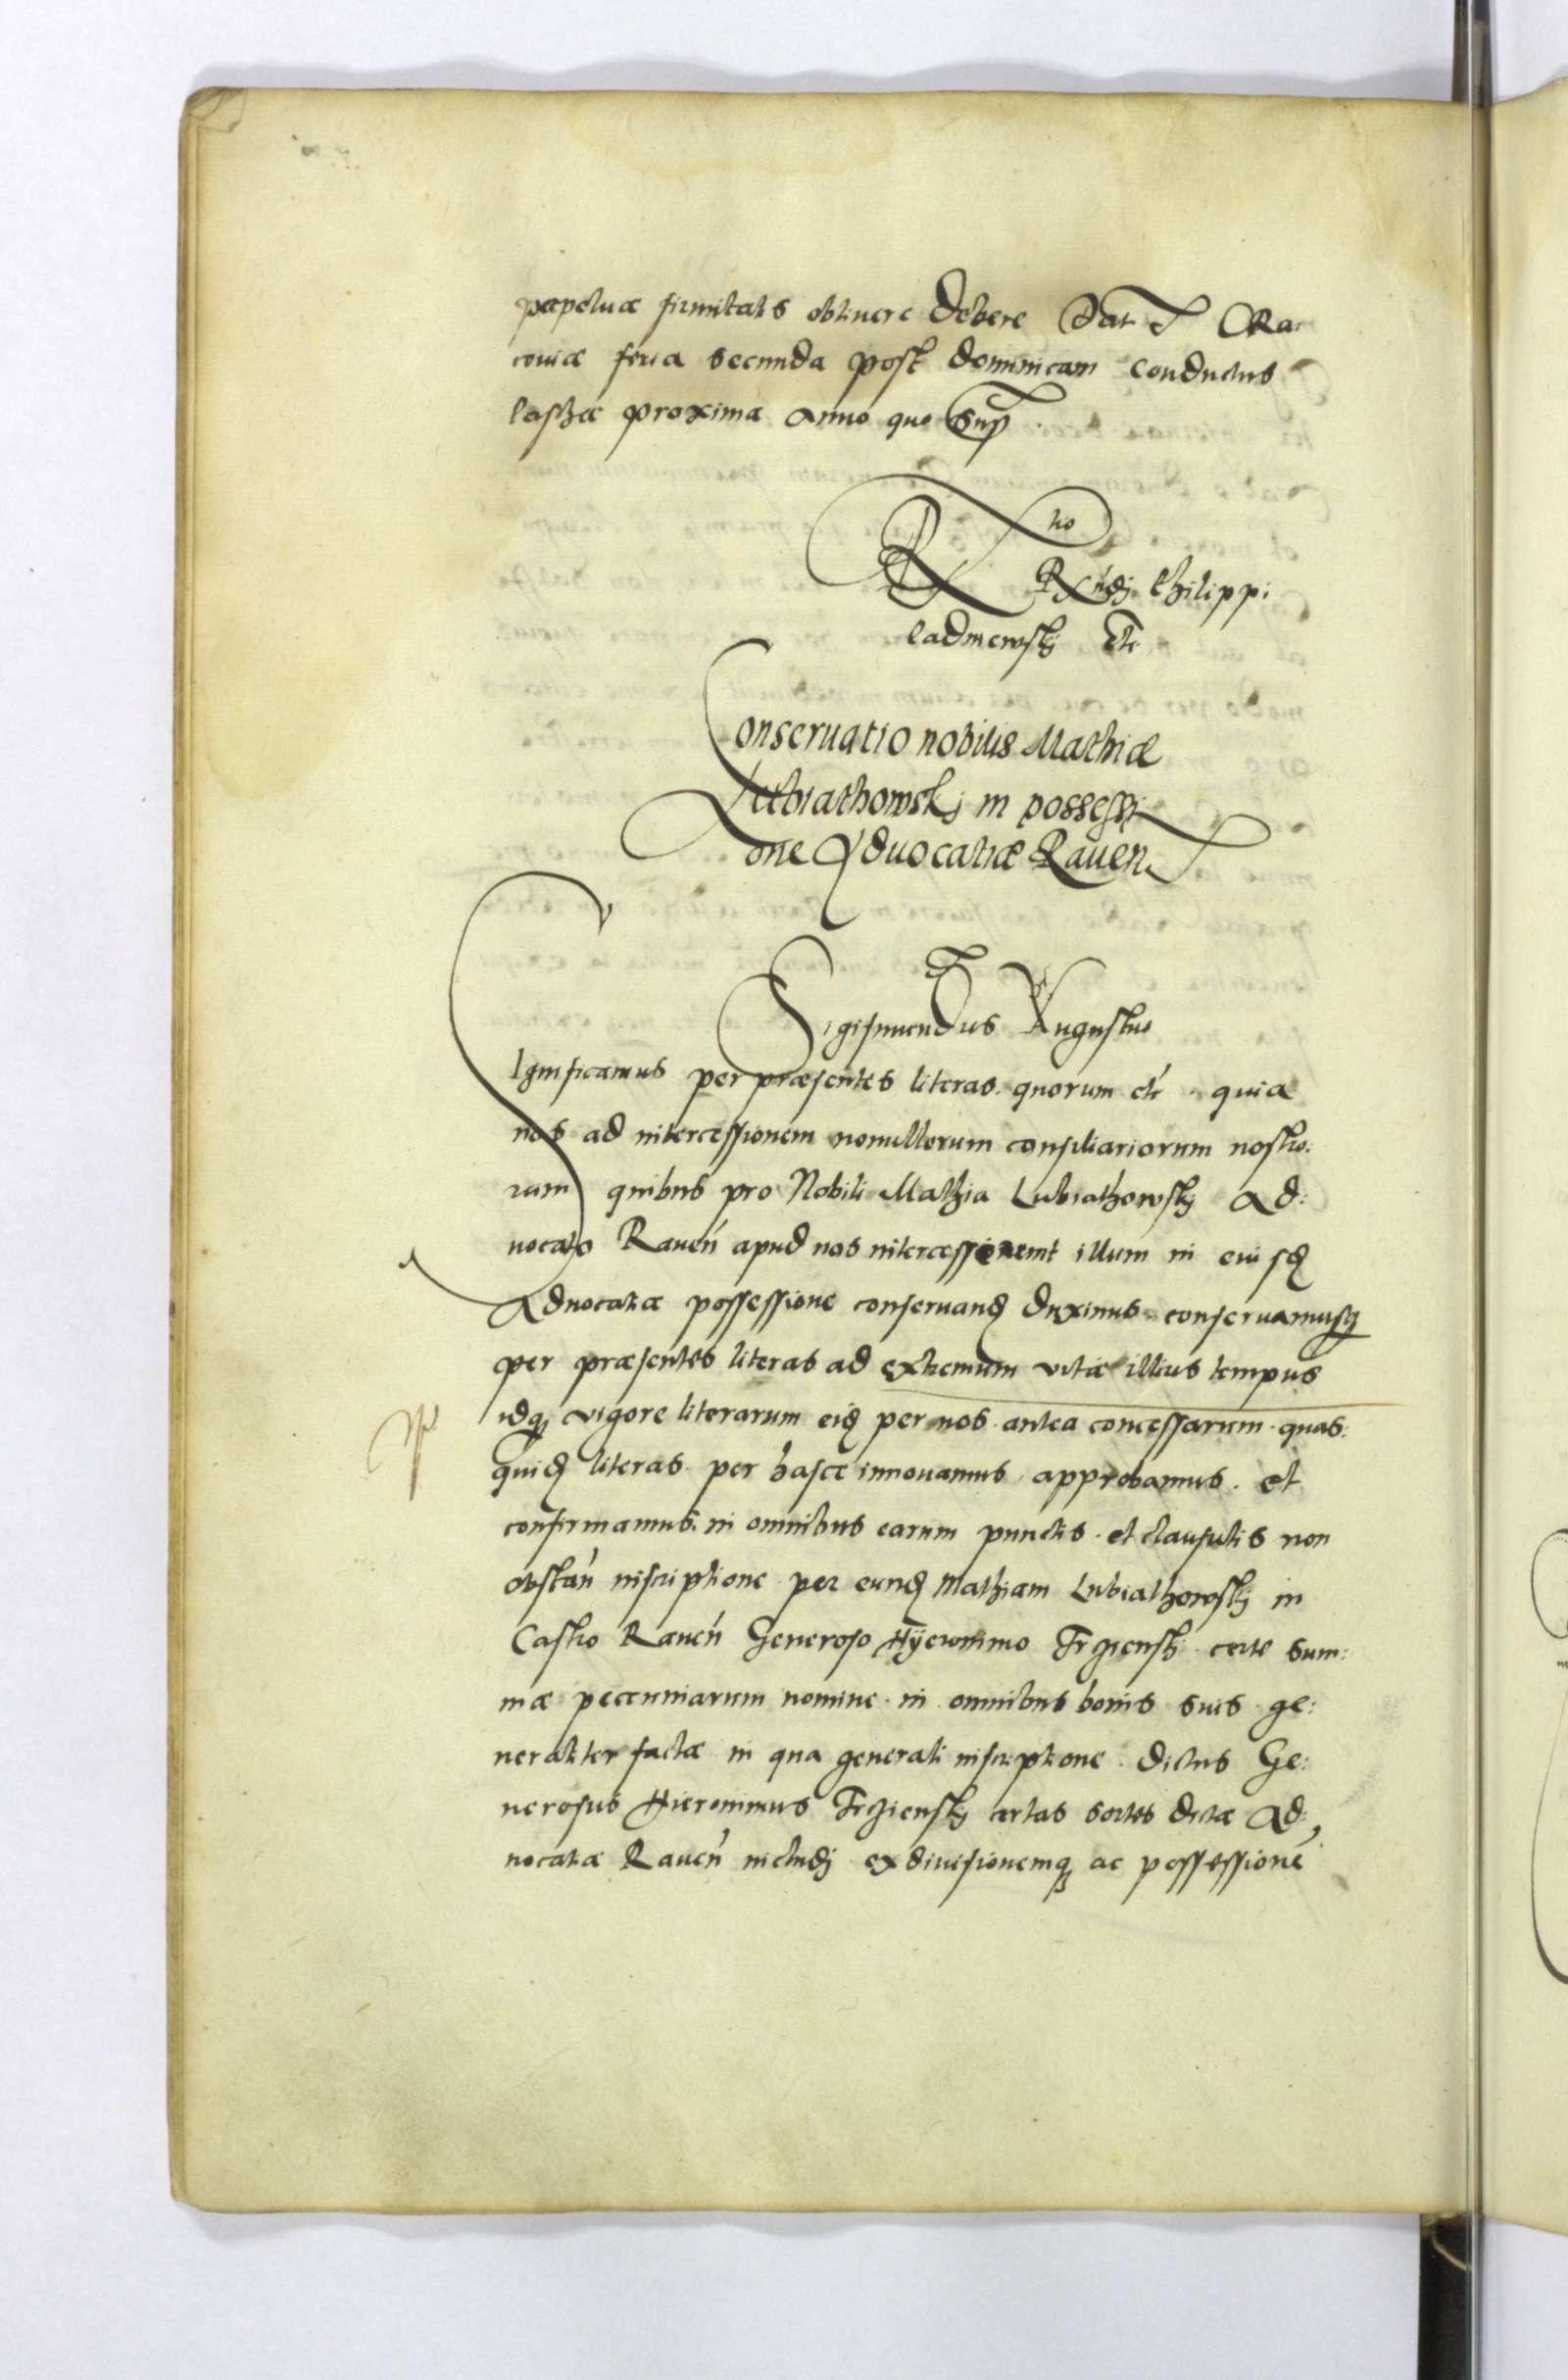 perpetuæ firmitatis obtinere debere Dat Cra
couiæ feria secunda post dominicam Conductus
Paschæ proxima anno quo Sup
R tio
Rndj Philippi
Padnewskj etc
Conseruatio nobilis Mathiæ
Lubiathowskj in possessi
one Aduocatiæ Rauen
Sigismundus Augustus
Significamus per præsentes literas quorum etc quia
nos ad intercessionem nonullorum consiliariorum nostro:
rum quibus pro Nobili Mathia Lubiathowskj Ad:
uocato Raueń apud nos intercesserunt illum in eiusd
Aduocatiæ possessione conseruand duximus conseruamusq
per præsentes literas ad extremum vitæ illius tempus
idq vigore literarum eid per nos antea concessarum quas:
quid literas per hasce innouamus approbamus et
confirmamus in omnibus earum punctis et clausulis non
obstań inscriptione per eund Mathiam Lubiathowskj in
Castro Raueń Generoso Hÿeronimo Trzienskj certe sum:
mæ pecuniarum nomine in omnibus bonis suis ge:
neraliter factæ in qua generali inscriptione dictus Ge:
nerosus Hieronimus Trzienskj certas sortes dictæ Ad:
uocatiæ Raueń includj exdiuisionemq ac possessionē